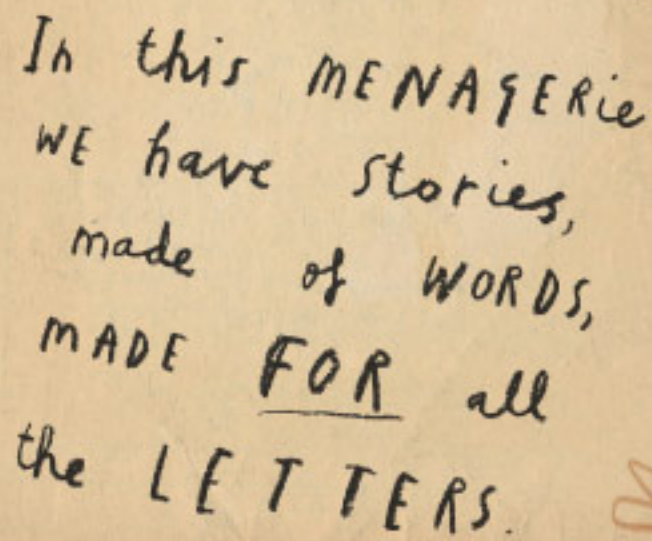 In this MENAGERie
WE have stories,
made of WORDS,
MADE FOR all
the LETTERS.